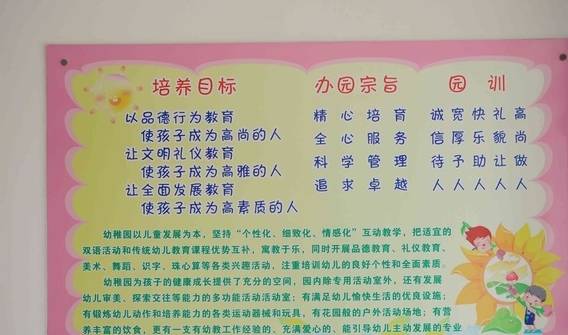 培养目标 办园宗旨 园训
以品德行为教育 精心培育 诚宽快礼高
使孩子成为高尚的人 全心服务 信厚乐貌尚
让文明礼仪教育 科学管理 待予助让做
使孩子成为高雅的人 追求卓越 人人人人人
让全面发展教育
使孩子成为高素质的人
幼稚园以儿童发展为本，坚持“个性化、细致化、情感化”互动教学，把适宜的
双语活动和传统幼儿教育课程优势互补，寓教于乐，同时开展品德教育、礼仪教育、
美术、舞蹈、识字、珠心算等各类兴趣活动，注重培训幼儿的良好个性和全面素质。
幼稚园为孩子的健康成长提供了充分的空间，园内除专用活动室外，还有发展
幼儿审美、探索交往等能力的多功能活动活动室；有满足幼儿愉快生活的优良设施；
有锻炼幼儿动作和培养能力的各类运动器械和玩具，有花园般的户外活动场地；有营
养丰富的饮食，更有一支有幼教工作经验的、充满爱心的、能引导幼儿主动发展的专业